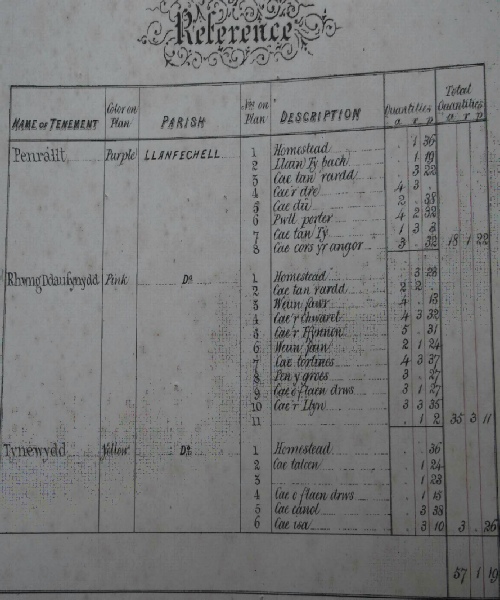 Reference
NAME OF TENEMENT Color on Plan PARISH Nos on Plan DESCRIPTION Quantities a r p Total Quantities a r p
Penrallt Purple LLANFECHELL 1 Homestead . 1 36
2 Llain Ty bach . 1 19
3 Cae tan rardd . 3 22
4 Cae'r dre 4 3 .
5 Cae du 2 . 38
6 Pwll porter 4 2 32
7 Cae tan Ty 1 3 3
8 Cae cors yr angor 3 . 32 18 1 22
Rhwng Ddaufynydd Pink Do 1 Homestead . 3 23
2 Cae tan rardd 2 2 .
3 Weun fawr 4 . 13
4 Cae'r chwarel 4 3 32
5 Cae'r Ffynnon 5 . 31
6 Weun fain 2 1 24
7 Cae torlines 4 3 37
8 Pen y groes 3 . 27
9 Cae o flaen drws 3 1 27
10 Cae'r Llyn 3 3 35
11 . 1 2 35 3 11
Tynewydd Yellow Do 1 Homestead . . 36
2 Cae talcen . 1 24
3 . 1 23
4 Cae o flaen drws . 1 15
5 Cae canol . 3 38
6 Cae isa . 3 10 3 . 26
57 1 19